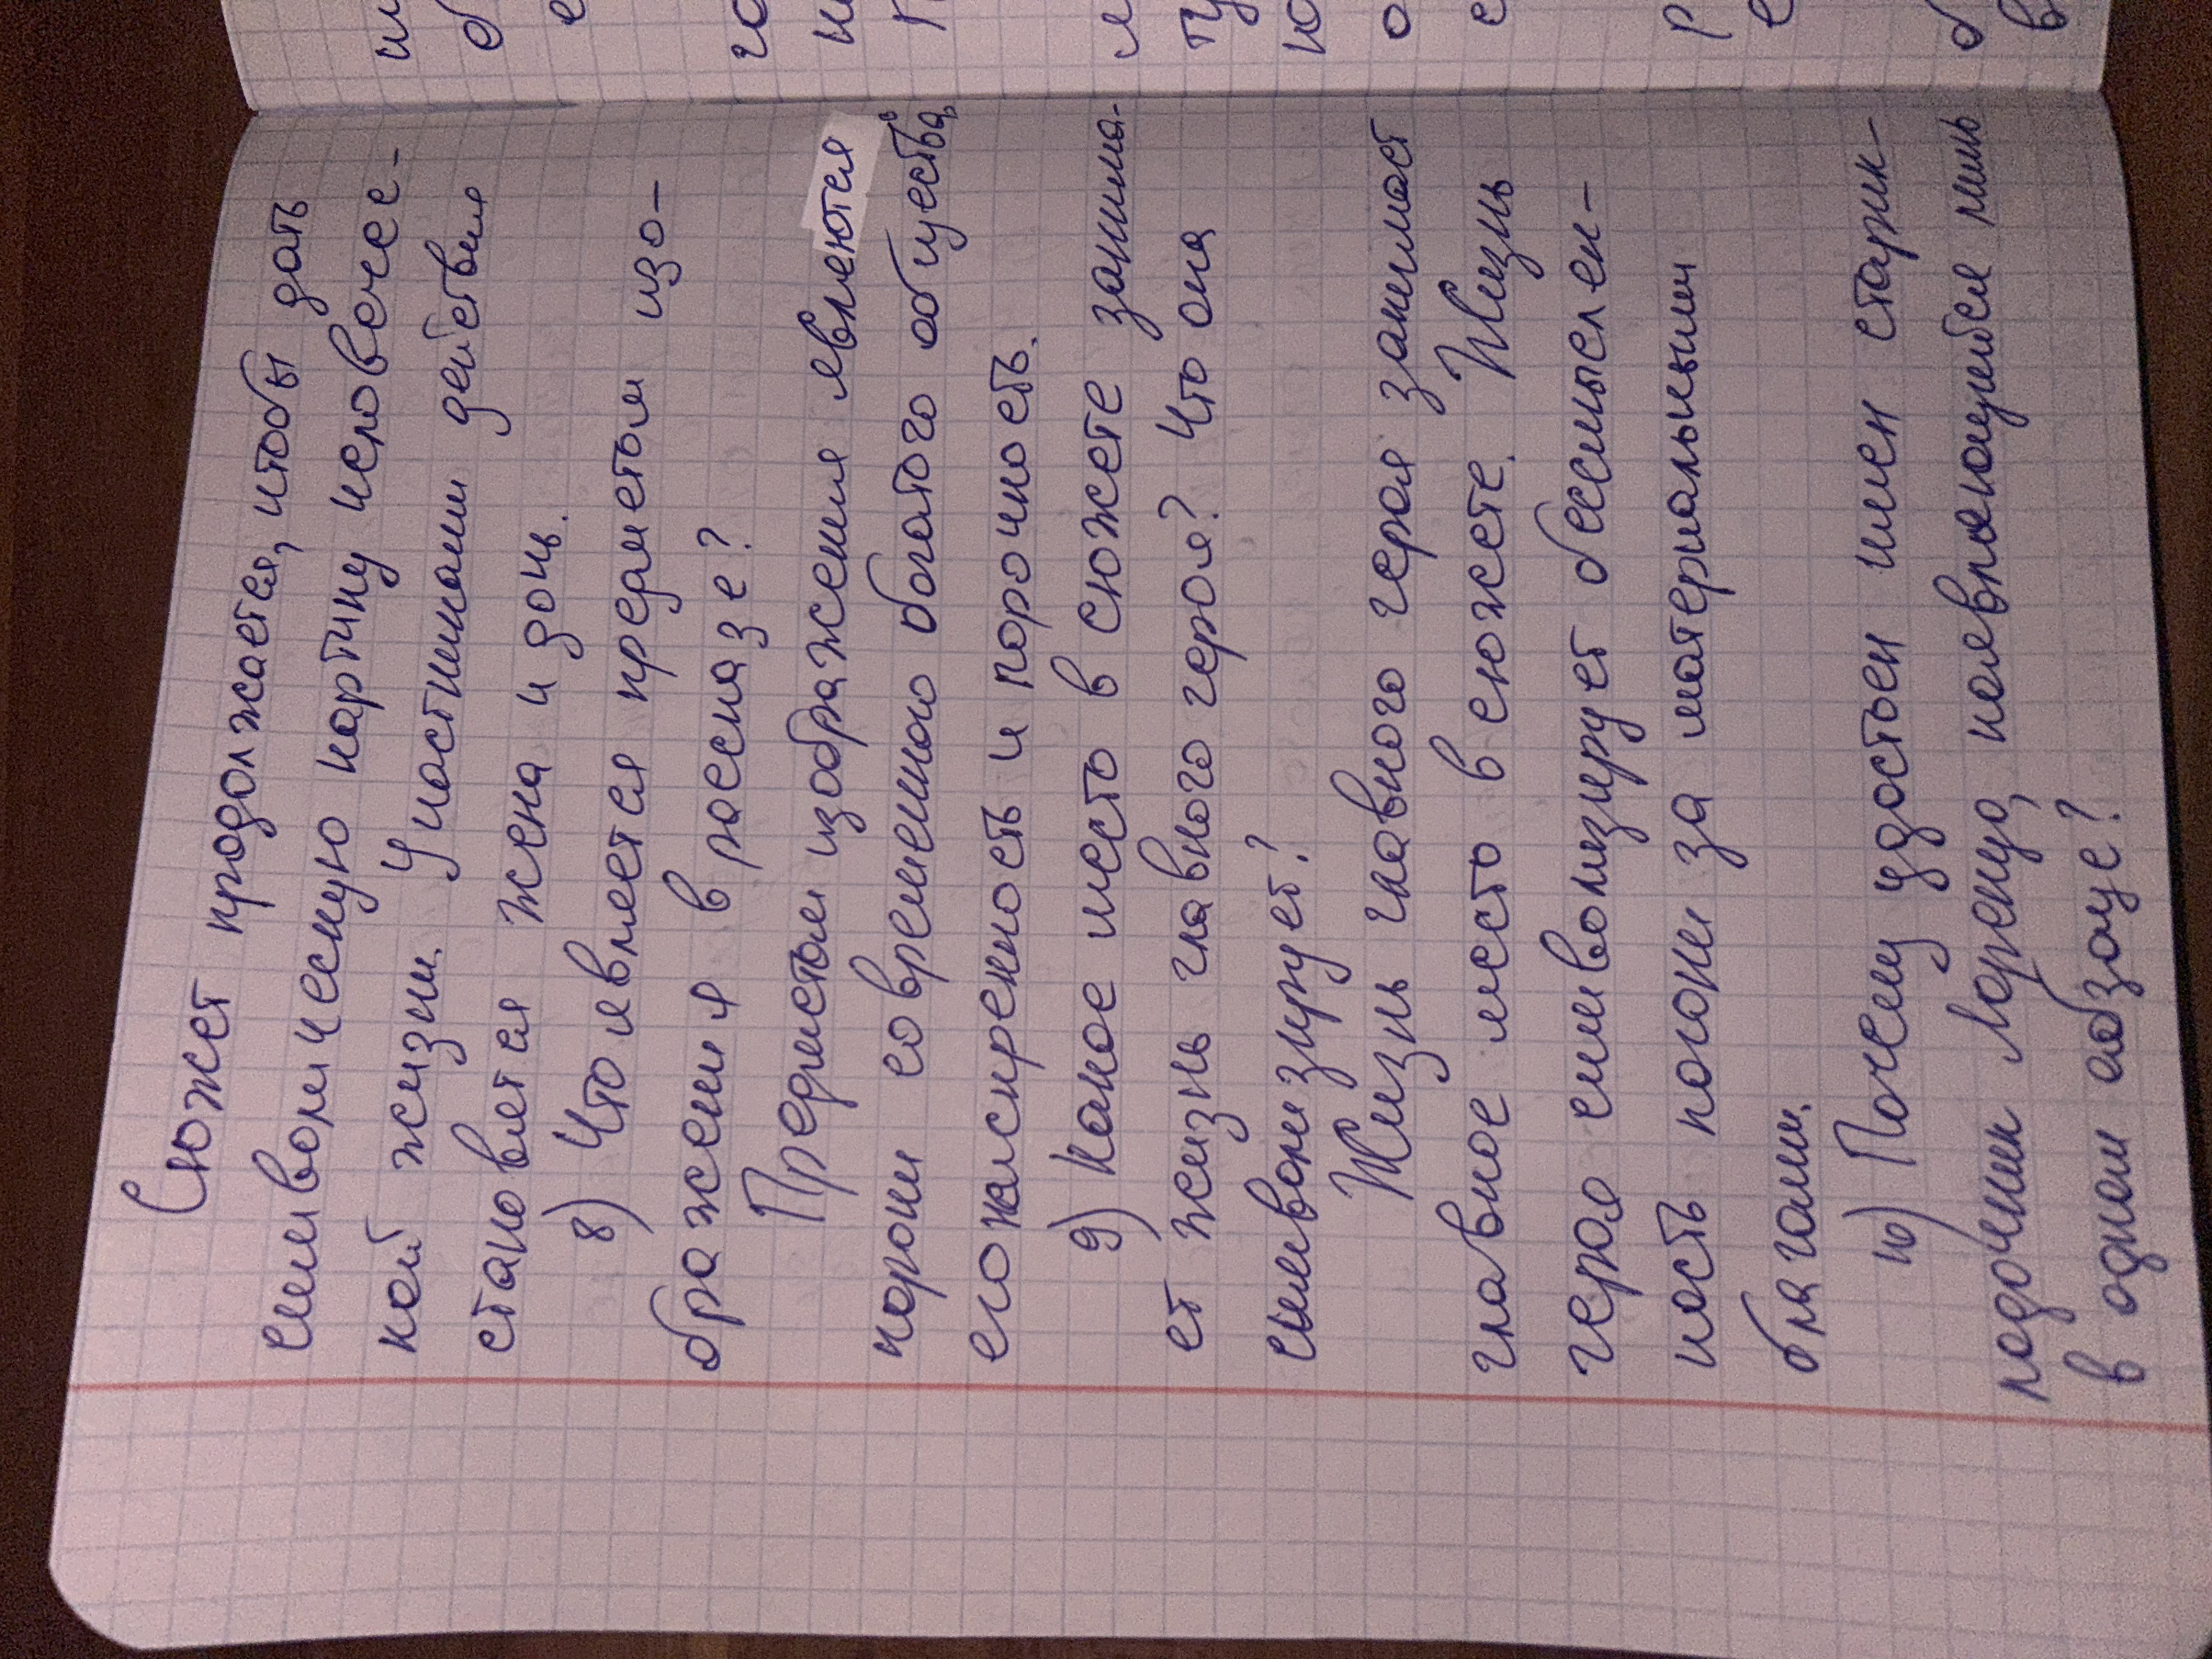 Сюжет продолжается, чтобы дать
символическую картину человечес-
кой жизни. Участниками действия
становится жена и дочь.
8) Что является предметом изо-
бражения в рассказе?
Предметом изображения являются
пороки современного богатого общества,
его наспренность и порочность.
9) Какое место в сюжете занима-
ет жизнь главного героя? Что она
символизирует?
Жизнь главного героя занимает
главное место в сюжете. Жизнь
героя символизирует бессмыслен-
ность погони за материальными
благами.
10) Почему удостоен имен старик-
лодочник Лоренцо, появляющийся лишь
в одном абзаце?